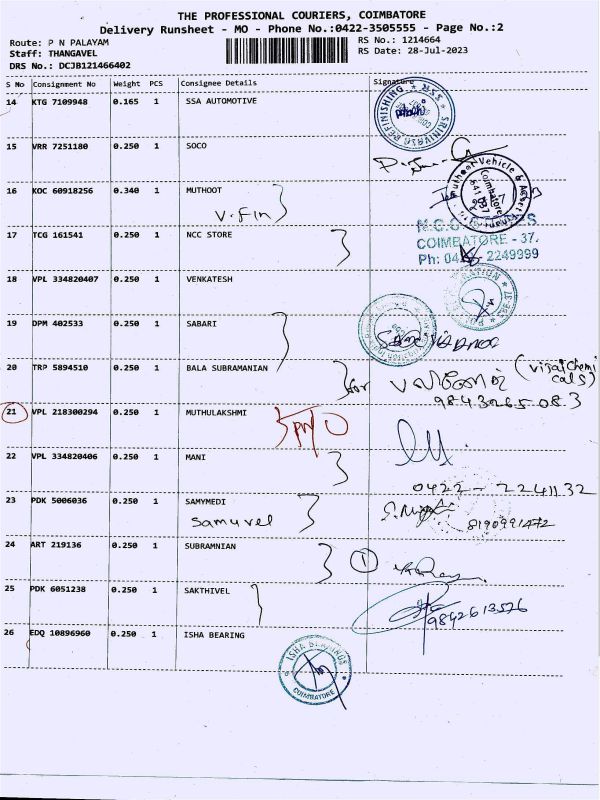 THE PROFESSIONAL COURIERS, COIMBATORE
Delivery Runsheet - MO - Phone No.:0422-3505555 - Page No.:2
Route: P N PALAYAM RS No.: 1214664
Staff: THANGAVEL RS Date: 28-Jul-2023
DRS No.: DCJB121466402
S No Consignment No Weight PCS Consignee Details Signature
14 KTG 7109948 0.165 1 SSA AUTOMOTIVE
15 VRR 7251180 0.250 1 SOCO
16 KOC 60918256 0.340 1 MUTHOOT
V.Fin
17 TCG 161541 0.250 1 NCC STORE
COIMBATORE - 37.
2249999
18 VPL 334820407 0.250 1 VENKATESH
19 DPM 402533 0.250 1 SABARI
20 TRP 5894510 0.250 1 BALA SUBRAMANIAN
for
21 VPL 218300294 0.250 1 MUTHULAKSHMI
22 VPL 334820406 0.250 1 MANI
0422 - 2241132
23 PDK 5006036 0.250 1 SAMYMEDI
Samuvel
8190991472
24 ART 219136 0.250 1 SUBRAMNIAN
1
25 PDK 6051238 0.250 1 SAKTHIVEL
9842613526
26 EDQ 10896960 0.250 1 ISHA BEARING
ISHA BEARINGS
COIMBATORE